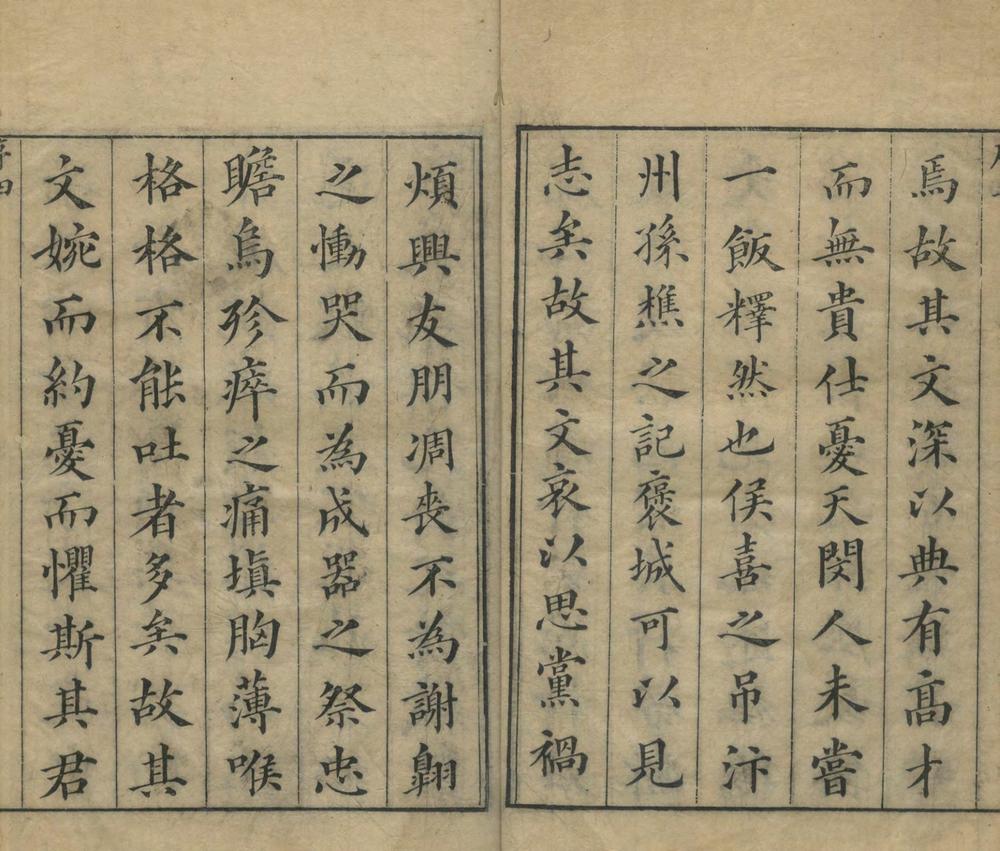 焉故其文深以典有高才
而無貴仕憂天閔人未嘗
一飯釋然也侯喜之吊汴
州孫樵之記褒城可以見
志矣故其文哀以思黨禍
煩興友朋凋喪不為謝翱
之慟哭而為成器之祭忠
瞻烏殄瘁之痛填胸薄喉
格格不能吐者多矣故其
文婉而約憂而懼斯其君
序四